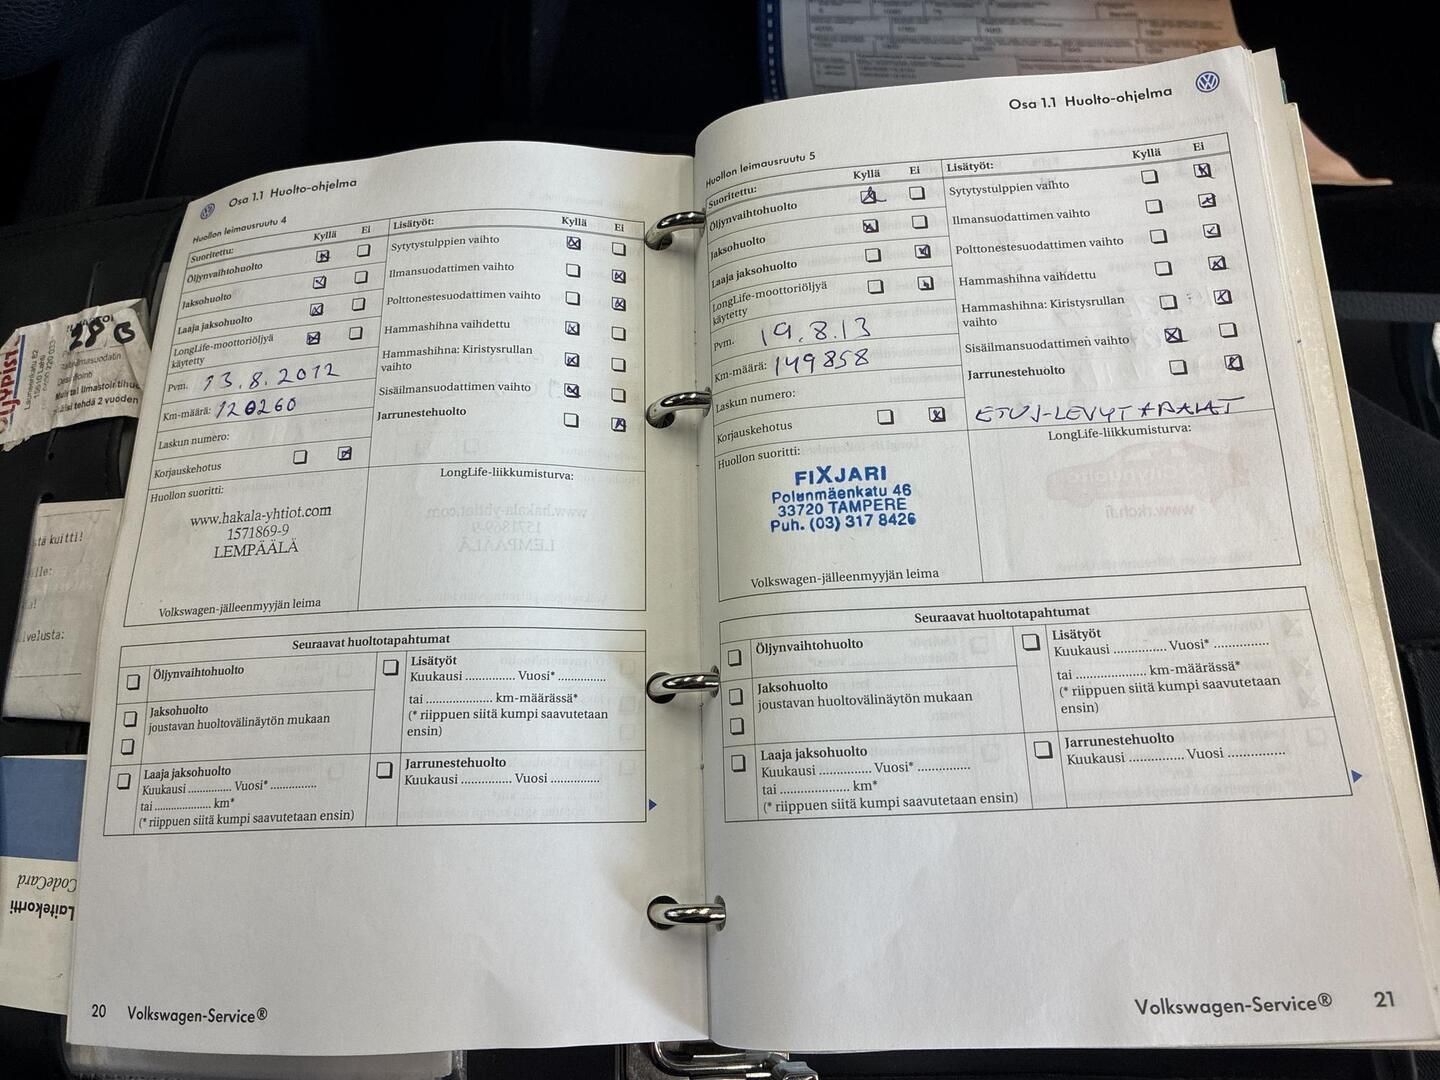 Osa 1.1 Huolto-ohjelma
Huollon leimausruutu 4
Suoritettu: Kyllä Ei
Öljynvaihtohuolto
Jaksohuolto
Laaja jaksohuolto
LongLife-moottoriöljyä
käytetty
Pvm. 13.8.2012
Km-määrä: 120260
Laskun numero:
Korjauskehotus
Lisätyöt: Kyllä Ei
Sytytystulppien vaihto
Ilmansuodattimen vaihto
Polttonestesuodattimen vaihto
Hammashihna vaihdettu
Hammashihna: Kiristysrullan
vaihto
Sisäilmansuodattimen vaihto
Jarrunestehuolto
Huollon suoritti:
www.hakala-yhtiot.com
1571869-9
LEMPÄÄLÄ
Volkswagen-jälleenmyyjän leima
LongLife-liikkumisturva:
Seuraavat huoltotapahtumat
Öljynvaihtohuolto
Jaksohuolto
joustavan huoltovälinäytön mukaan
Laaja jaksohuolto
Kuukausi .............. Vuosi* ..............
tai ..................... km*
(* riippuen siitä kumpi saavutetaan ensin)
Lisätyöt
Kuukausi .............. Vuosi* ..............
tai .................... km-määrässä*
(* riippuen siitä kumpi saavutetaan
ensin)
Jarrunestehuolto
Kuukausi .............. Vuosi ..............
20 Volkswagen-Service®
Osa 1.1 Huolto-ohjelma
Huollon leimausruutu 5
Suoritettu: Kyllä Ei
Öljynvaihtohuolto
Jaksohuolto
Laaja jaksohuolto
LongLife-moottoriöljyä
käytetty
Pvm. 19.8.13
Km-määrä: 149858
Laskun numero:
Korjauskehotus
Lisätyöt: Kyllä Ei
Sytytystulppien vaihto
Ilmansuodattimen vaihto
Polttonestesuodattimen vaihto
Hammashihna vaihdettu
Hammashihna: Kiristysrullan
vaihto
Sisäilmansuodattimen vaihto
Jarrunestehuolto
ETUJ-LEVYT + PALAT
Huollon suoritti:
FIXJARI
Polunmäenkatu 46
33720 TAMPERE
Puh. (03) 317 8426
Volkswagen-jälleenmyyjän leima
LongLife-liikkumisturva:
Seuraavat huoltotapahtumat
Öljynvaihtohuolto
Jaksohuolto
joustavan huoltovälinäytön mukaan
Laaja jaksohuolto
Kuukausi .............. Vuosi* ..............
tai ..................... km*
(* riippuen siitä kumpi saavutetaan ensin)
Lisätyöt
Kuukausi .............. Vuosi* ..............
tai .................... km-määrässä*
(* riippuen siitä kumpi saavutetaan
ensin)
Jarrunestehuolto
Kuukausi .............. Vuosi ..............
Volkswagen-Service® 21
28 B
Launeenkatu 82
15610 Lahti
CodeCard
Laitekortti